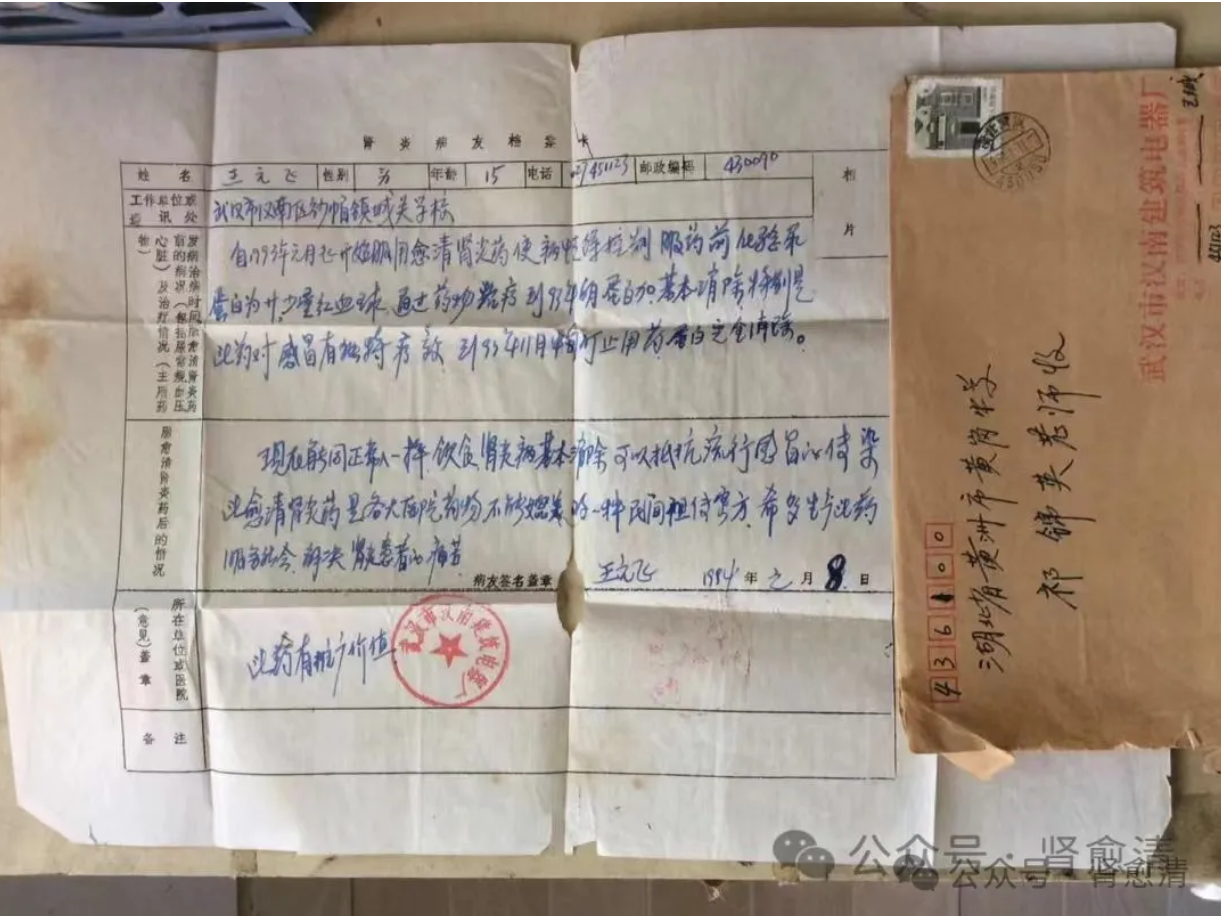 肾炎病友档案卡
姓名 王元飞 性别 年龄 15 电话 451123 邮政编码 430090 相片
工作单位或通讯处 武汉市汉南区纱帽镇城关学校
发病治疗时间服愈清肾炎药前的病况(包括尿常规血压心脏)及治疗情况(主用药物)
自1993年元月起开始服用愈清肾炎药使病情得控制 服药前化验尿
蛋白为 少量红血球 通过药物治疗到93年 月蛋白 基本消除特别是
此药对感冒有独特疗效 到93年11月 可止用药 蛋白完全消除。
服愈清肾炎药后的情况
现在能同正常人一样饮食 肾炎病基本消除 可以抵抗流行感冒的传染
此愈清肾炎药是各大医院药物不能 的一种民间祖传密方 希多生产此药
服务社会 解决肾炎患者的痛苦
病友签名盖章 王元飞 1994年元月8日
所在单位或医院(意见)盖章
此药有推广价值
武汉市汉南建筑电器厂
备注
430090
436100
湖北省黄州市黄岗中学
祁锦英老师收
武汉市汉南建筑电器厂
公众号·肾愈清
公众号·肾愈清